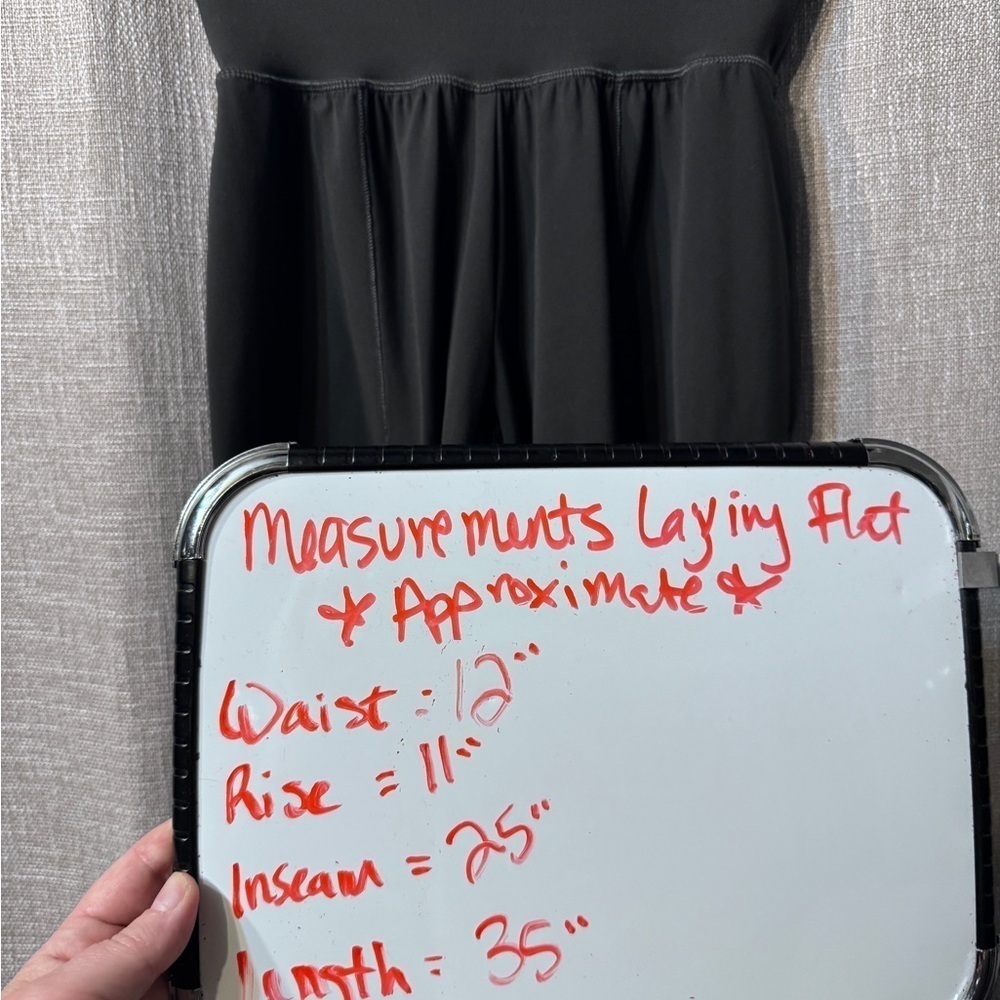 Measurements Laying Flat
* Approximate *
Waist: 12"
Rise = 11"
Inseam = 25"
Length = 35"